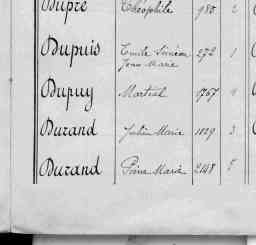 Dupré Théophile 980 2
Dupuis Emile Siméon 272 1
Jean Marie
Dupuy Martial 1757 9
Durand Julien Marie 1029 3
Durand Pierre Marie 2148 8